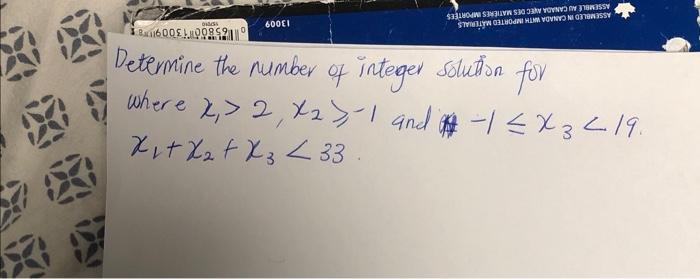 ASSEMBLED IN CANADA WITH IMPORTED MATERIALS
ASSEMBLÉ AU CANADA AVEC DES MATIÈRES IMPORTÉES
13009
Determine the number of integer solution for
where x₁ > 2, x₂ ≥ -1 and -1 ≤ x₃ < 19.
x₁ + x₂ + x₃ < 33.